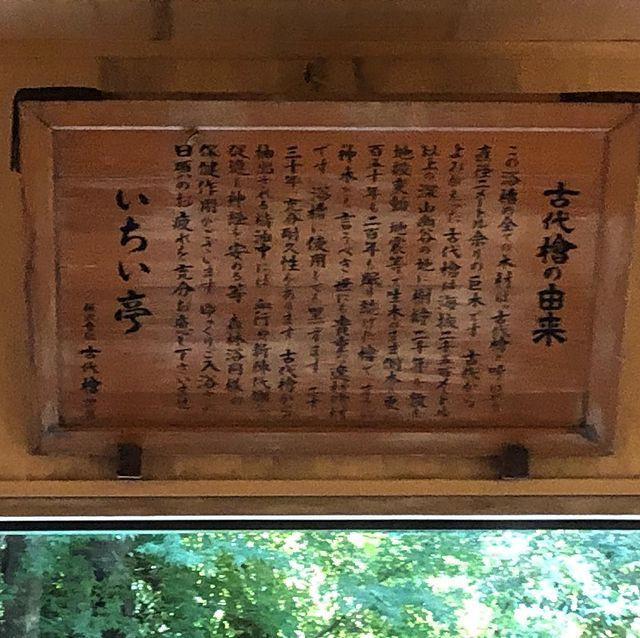 古代檜の由来
この浴槽の全ての木材は、古代檜と呼ばれ
直径二メートル余りの巨木です 古代から
よみがえった古代檜は海抜二千五百メートル
以上の深山幽谷の地に樹齢二千年を数え
地殻変動 地震等で生木のまま倒木し更
百五十年も二百年も眠り続けた檜で
神木とも言うべき世にも貴重な
です 浴槽に使用しても
三十年 充分耐久性もあります 古代檜から
抽出される精油中には 血行や新陳代謝の
促進し神経を安める等 森林浴同様の
保健作用がございます ゆっくりご入浴され
日頃のお疲れを充分お癒し下さいませ
いちい亭
古代檜